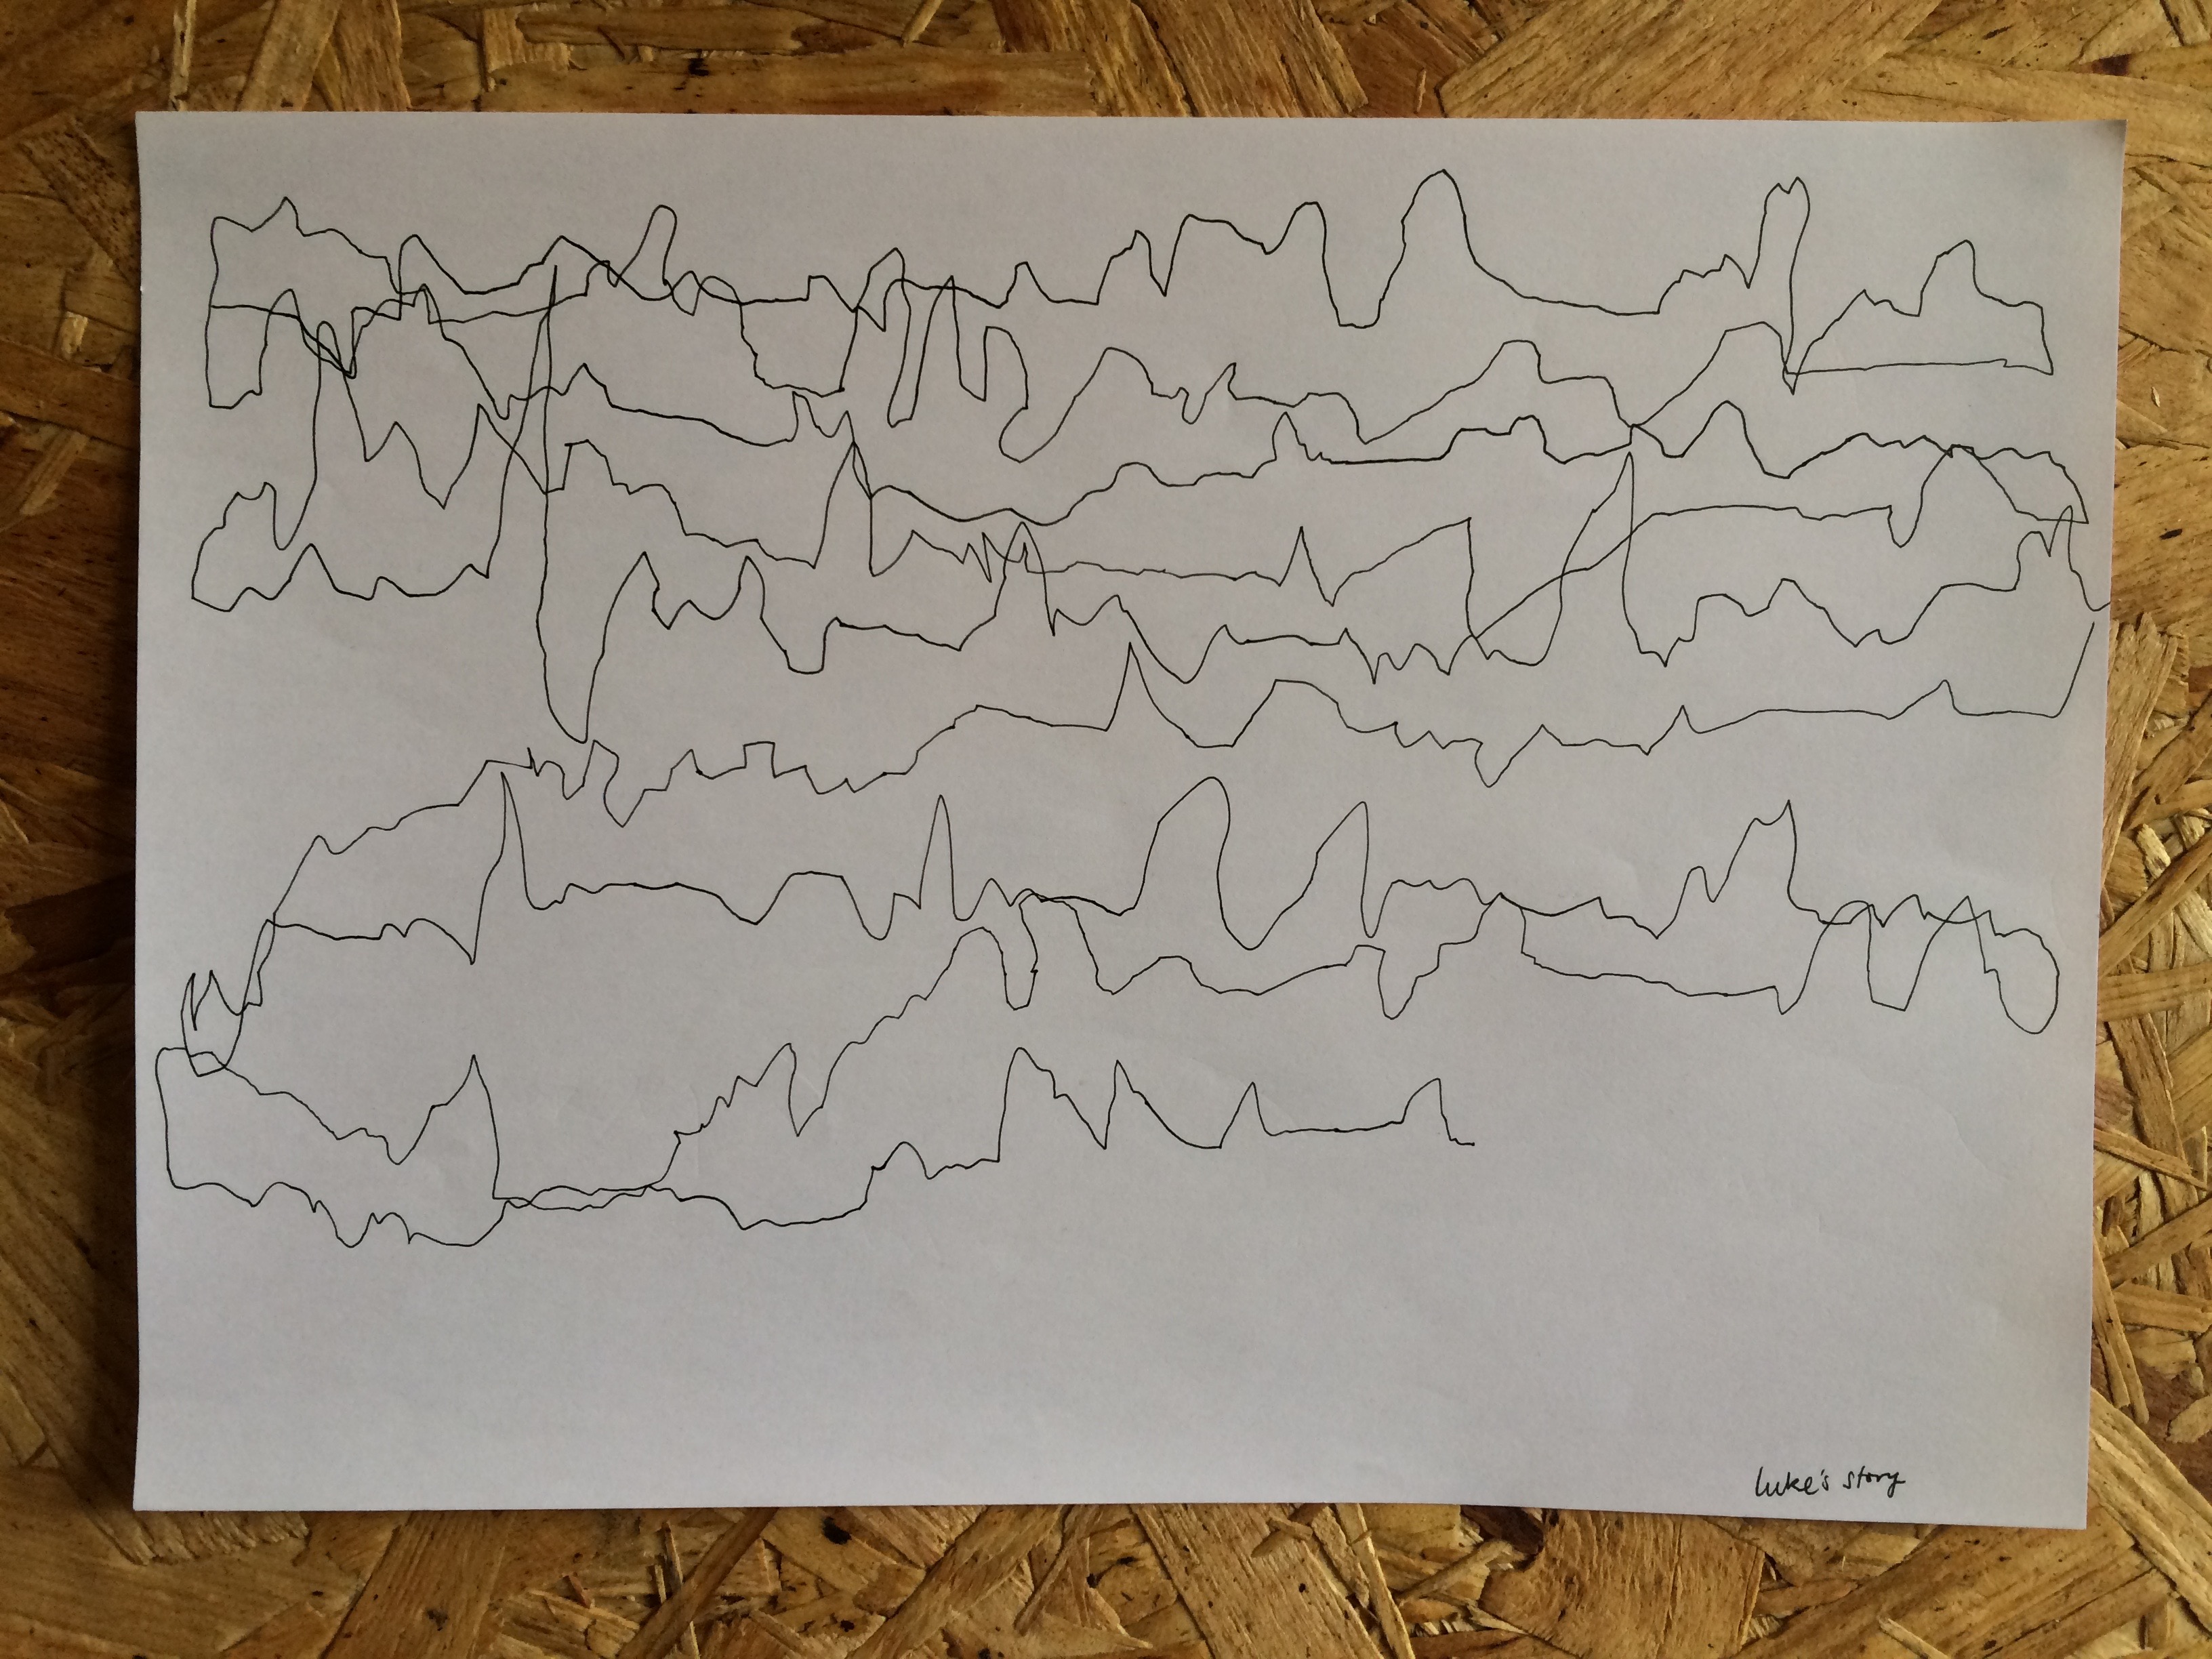 luke's story